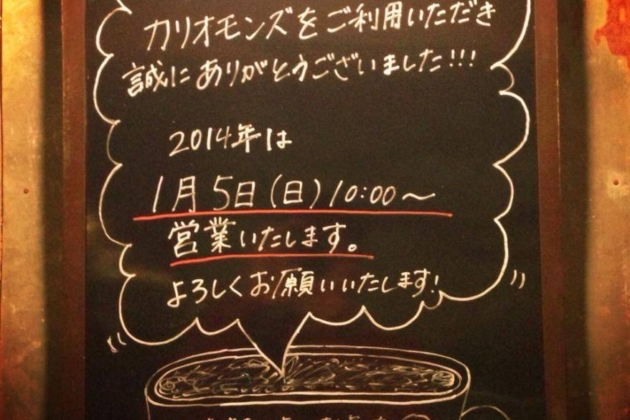 カリオモンズをご利用いただき
誠にありがとうございました!!!
2014年は
1月5日(日)10:00〜
営業いたします。
よろしくお願いいたします!